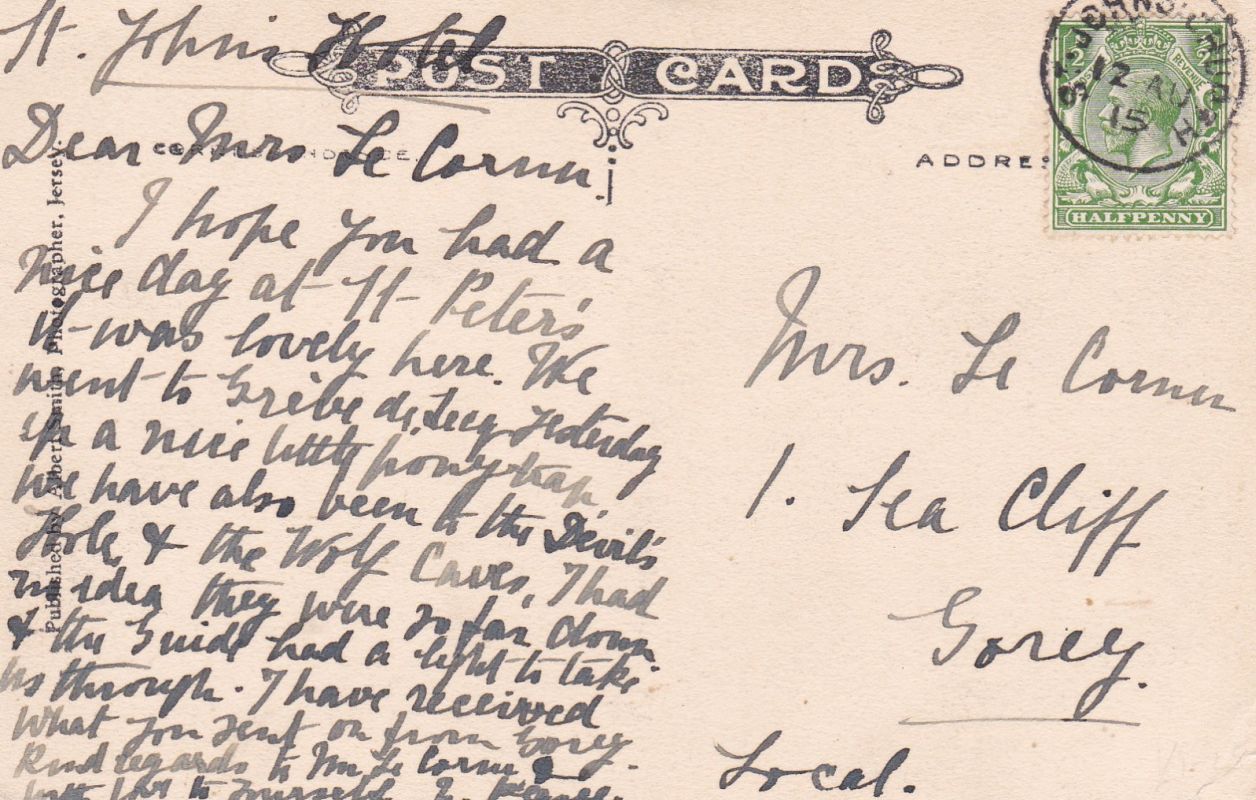 St. John's Hotel
POST CARD
CORRESPONDENCE.
ADDRES
HALFPENNY
REVENUE
12 AU
15
Dear Mrs Le Cornu.
I hope you had a
nice day at St Peter's
it was lovely here. We
went to Grêve de Lecq yesterday
in a nice little pony trap,
We have also been to the Devil's
Hole, & the Wolf Caves, I had
no idea they were so far down
& the Guide had a light to take
us through. I have received
what you sent on from Gorey.
Kind regards to Mr Le Cornu &
with love to yourself E.
Published by Albert Smith, Photographer, Jersey.
Mrs. Le Cornu
1. Sea Cliff
Gorey.
Local.